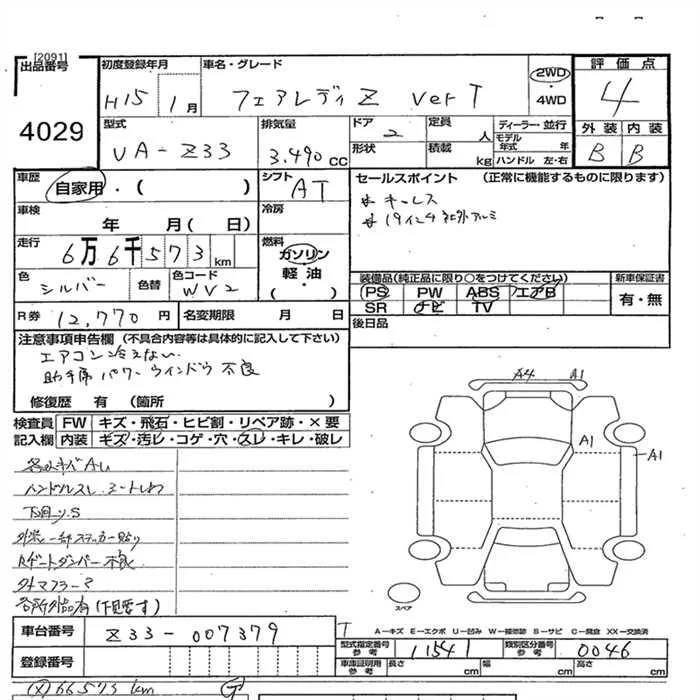 [2091]
出品番号
4029
初度登録年月
H15 1月
車名・グレード
フェアレディZ ver T
2WD
4WD
評価点
4
外装 内装
B B
型式
UA-Z33
排気量
3.490 cc
ドア
2
形状
定員 人
積載 kg
ディーラー・並行
モデル年式 年
ハンドル 左・右
車歴
自家用・( )
シフト
AT
車検
年 月( 日)
冷房
走行
6万6千573km
燃料
ガソリン
軽油
・( )
色
シルバー
色替
色コード
WV2
R券 12,770円
名変期限 月 日
セールスポイント (正常に機能するものに限ります)
キーレス
19インチ社外アルミ
装備品(純正品に限り○をつけてください)
PS PW ABS エアB
SR ナビ TV
新車保証書
有・無
後日品
注意事項申告欄 (不具合内容等は具体的に記入して下さい)
エアコン冷えない
助手席パワーウインドウ不良
修復歴 有 (箇所 )
検査員記入欄
FW キズ・飛石・ヒビ割・リペア跡・×要
内装 キズ・汚レ・コゲ・穴・スレ・キレ・破レ
ハンドルスレ シートしわ
下廻りS
外装一部ステッカー貼り
Rゲートダンパー不良
外マフラー
各所外品有(下見要す)
A4 A1
A1
A1
スペア
車台番号
Z33-007379
登録番号
T
A-キズ E-エクボ U-凹み W-補修跡 S-サビ C-腐食 XX-交換済
型式指定番号 参考
11541
類別区分番号 参考
0046
車庫証明用 参考
長さ cm 幅 cm 高さ cm
66573 km